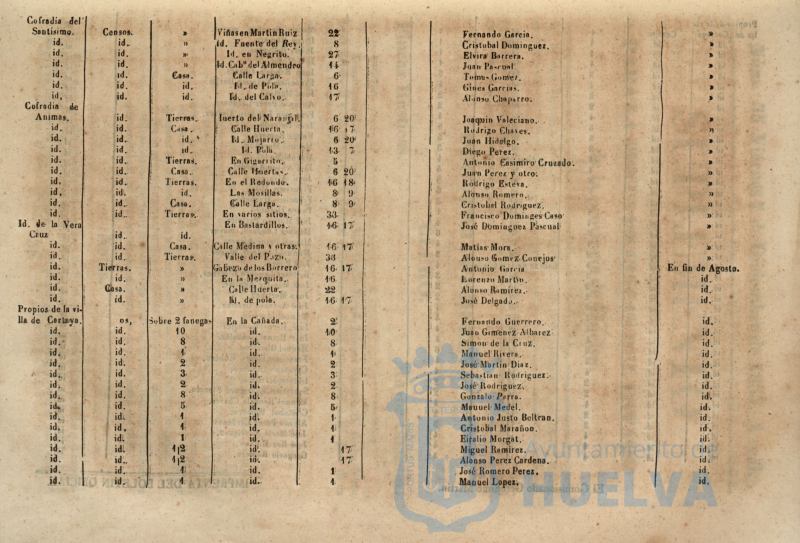 Cofradia del
Santisimo. Censos. » Viñas en Martin Ruiz 22 Fernando Garcia. »
id. id. » Id. Fuente del Rey. 8 Cristobal Dominguez. »
id. id. » id. en Negrito. 27 Elvira Barrera. »
id. id. » Id. Cabª del Almendro 14 Juan Pascual. »
id. id. Casa. Calle Larga. 6 Tomas Gomez. »
id. id. id. Id. de Pola. 16 Gines Garcias. »
id. id. id. Id. del Calvo. 17 Alonso Chaparro. »
Cofradia de
Animas. id. Tierras. Huerto del Naranjal. 6 20 Joaquin Valeciano. »
id. id. Casa. Calle Huerta. 16 17 Rodrigo Chaves. »
id. id. id. Id. Mojarro. 6 20 Juan Hidalgo. »
id. id. id. Id. Pola. 13 7 Diego Perez. »
id. id. Tierras. En Gigarrito. 5 Antonio Casimiro Cruzado. »
id. id. Casa. Calle Huertas. 6 20 Juan Perez y otro. »
id. id. Tierras. En el Redondo. 16 18 Rodrigo Esteva. »
id. id. id. Las Mosillas. 8 9 Alonso Romero. »
id. id. Casa. Calle Larga. 8 9 Cristobal Rodriguez. »
id. id. Tierras. En varios sitios. 33 Francisco Dominges Caso »
Id. de la Vera En Bastardillos. 16 17 José Dominguez Pascual »
Cruz id. id.
id. id. Casa. Calle Medina y otras. 16 17 Matias Mora. »
id. id. Tierras. Valle del Pozo. 33 Alonso Gomez Conejos »
id. Tierras. » Cabezo de los Borrero 16 17 Antonio Garcia En fin de Agosto.
id. id. » En la Mezquita. 16 Lorenzo Martin. id.
id. Casa. » Calle Huerta. 22 Alonso Ramirez. id.
id. id. » Id. de pola. 16 17 José Delgado. id.
Propios de la vi-
lla de Cartaya. os, Sobre 2 fanegas En la Cañada. 2 Fernando Guerrero. id.
id. id. 10 id. 10 Juan Gimenez Albarez id.
id. id. 8 id. 8 Simon de la Cruz. id.
id. id. 1 id. 1 Manuel Rivera. id.
id. id. 2 id. 2 José Martin Diaz. id.
id. id. 3 id. 3 Sebastian Rodriguez. id.
id. id. 2 id. 2 José Rodriguez. id.
id. id. 8 id. 8 Gonzalo Parra. id.
id. id. 5 id. 5 Manuel Medel. id.
id. id. 1 id. 1 Antonio Justo Beltran. id.
id. id. 1 id. 1 Cristobal Marañon. id.
id. id. 1 id. 1 Eiralio Morgat. id.
id. id. 1|2 id. 17 Miguel Ramirez. id.
id. id. 1|2 id. 17 Alonso Perez Cardena. id.
id. id. 1 id. 1 José Romero Perez. id.
id. id. 1 id. 1 Manuel Lopez. id.
Ayuntamiento de
HUELVA